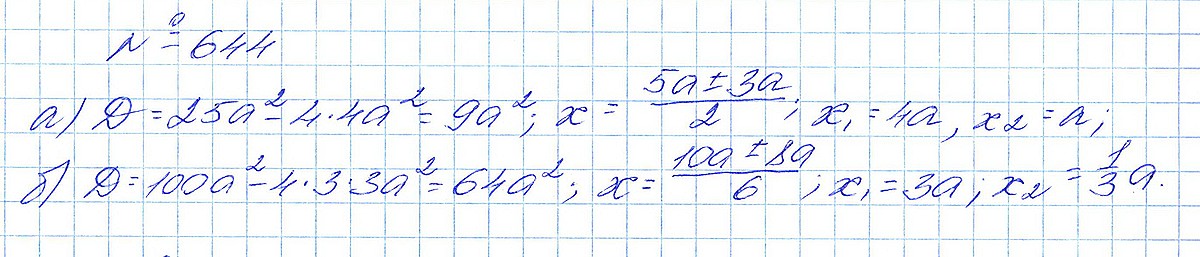 № 644
а) D = 25a² - 4·4a² = 9a²; x = (5a ± 3a)/2; x₁ = 4a, x₂ = a;
б) D = 100a² - 4·3·3a² = 64a²; x = (10a ± 8a)/6; x₁ = 3a; x₂ = 1/3 a.